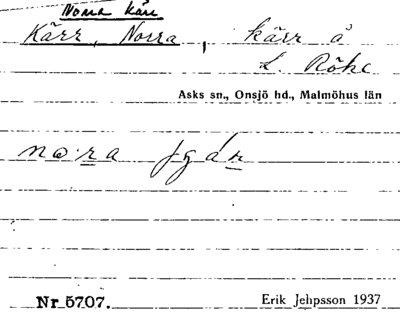 Norra Kärr
Kärr, Norra, kärr å
L. Röke
Asks sn., Onsjö hd., Malmöhus län
Nr 5707. Erik Jehpsson 1937